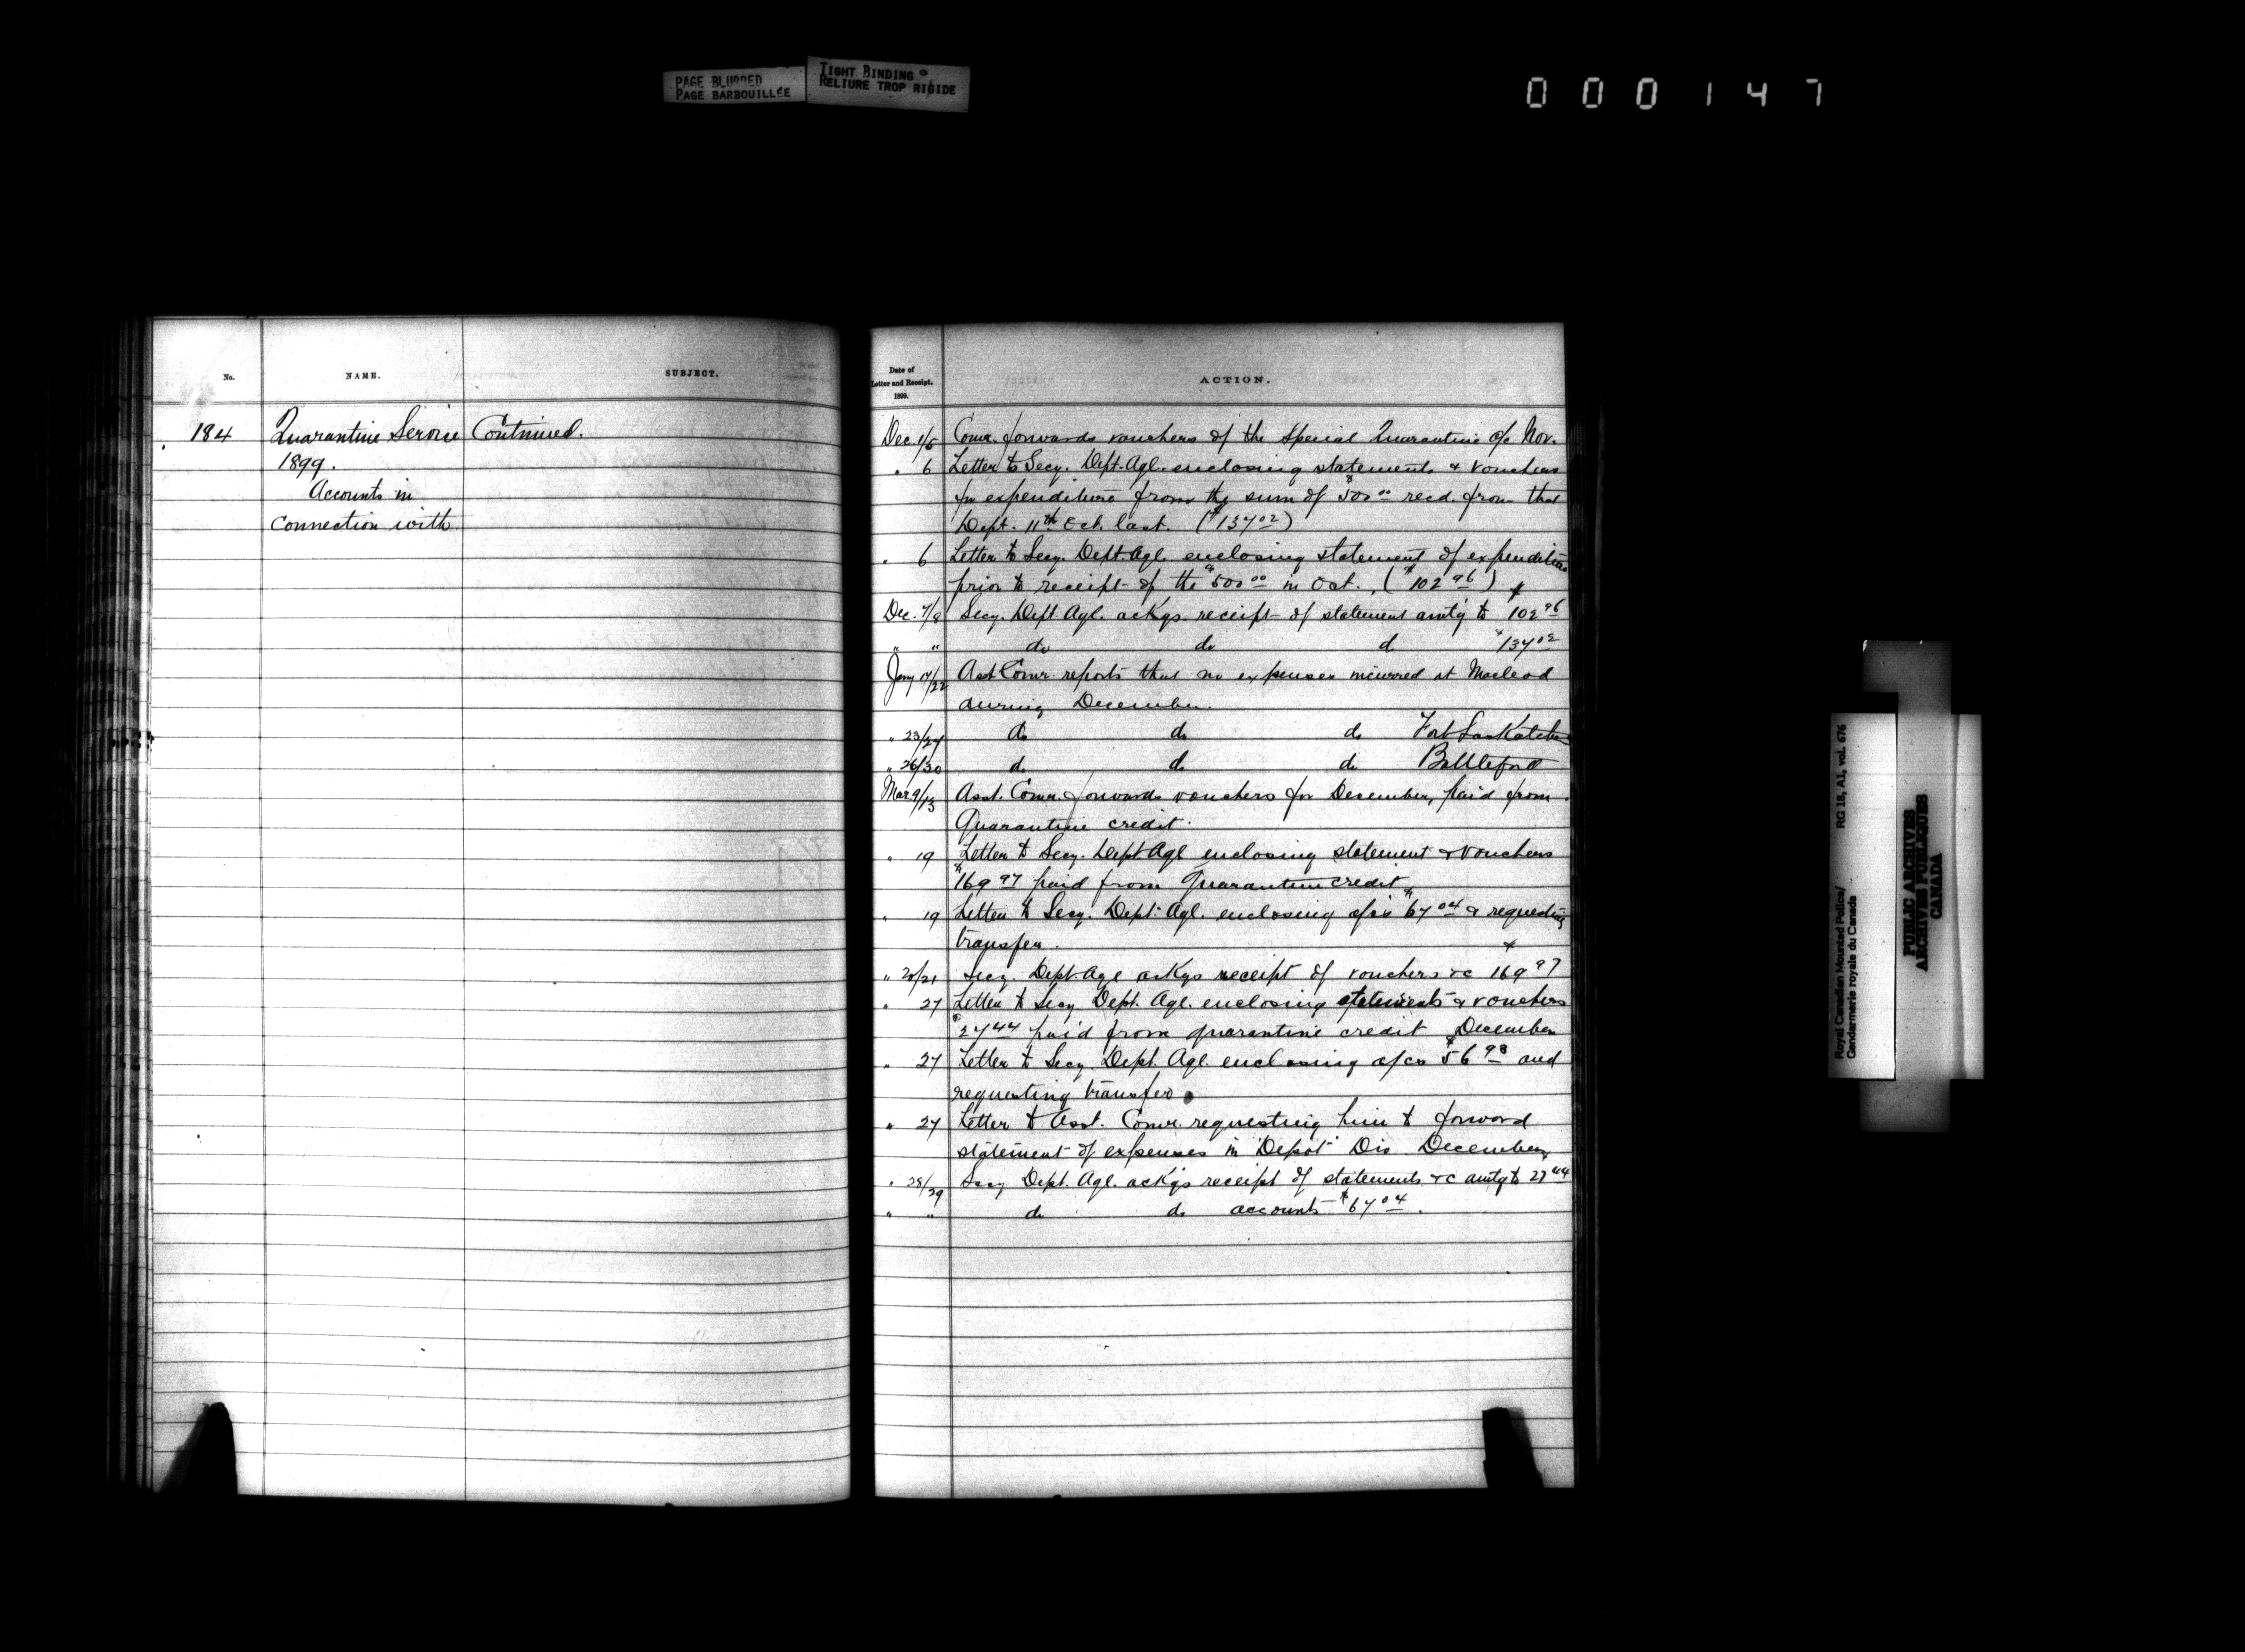 PAGE BLURRED
PAGE BARBOUILLÉE
TIGHT BINDING
RELIURE TROP RIGIDE
000147
No.
NAME.
SUBJECT.
184
Quarantine Service
Continued.
1899.
Accounts in
Connection with
Date of
Letter and Receipt.
1899.
ACTION.
Dec. 1/5 Comr. forwards vouchers of the Special Quarantine a/c Nov.
" 6 Letter to Secy. Dept. Agl. enclosing statements & vouchers
for expenditure from the sum of $500 00 recd. from that
Dept. 11th Oct. last. ($137 02)
" 6 Letter to Secy. Dept. Agl. enclosing statement of expenditure
prior to receipt of the $500 00 in Oct. ($102 96)
Dec. 7/8 Secy. Dept. Agl. ackgs. receipt of statement amtg to $102 96
" " do do d $137 02
Jany 17/22 Asst Comr. reports that no expenses incurred at Macleod
during December.
" 23/24 do do do Fort Saskatchn
" 26/30 do do do Battleford
Mar 9/13 Asst. Comr. forwards vouchers for December, paid from
Quarantine credit.
" 19 Letter to Secy. Dept Agl enclosing statement & vouchers
$169 97 paid from Quarantine credit
" 19 Letter to Secy. Dept. Agl. enclosing a/cs $67 04 & requesting
transfer.
" 20/21 Secy. Dept Agl ackgs receipt of vouchers &c $169 97
" 27 Letter to Secy Dept. Agl. enclosing statements & vouchers
$27 44 paid from quarantine credit December
" 27 Letter to Secy. Dept. Agl. enclosing a/cs $56 98 and
requesting transfer
" 27 Letter to Asst. Comr. requesting him to forward
statement of expenses in "Depot" Div December,
" 28/29 Secy Dept. Agl. ackgs receipt of statements &c amtg to 27 44
" " do do accounts $67 04.
Royal Canadian Mounted Police/
Gendarmerie royale du Canada
RG 18, A1, vol. 676
PUBLIC ARCHIVES
ARCHIVES PUBLIQUES
CANADA